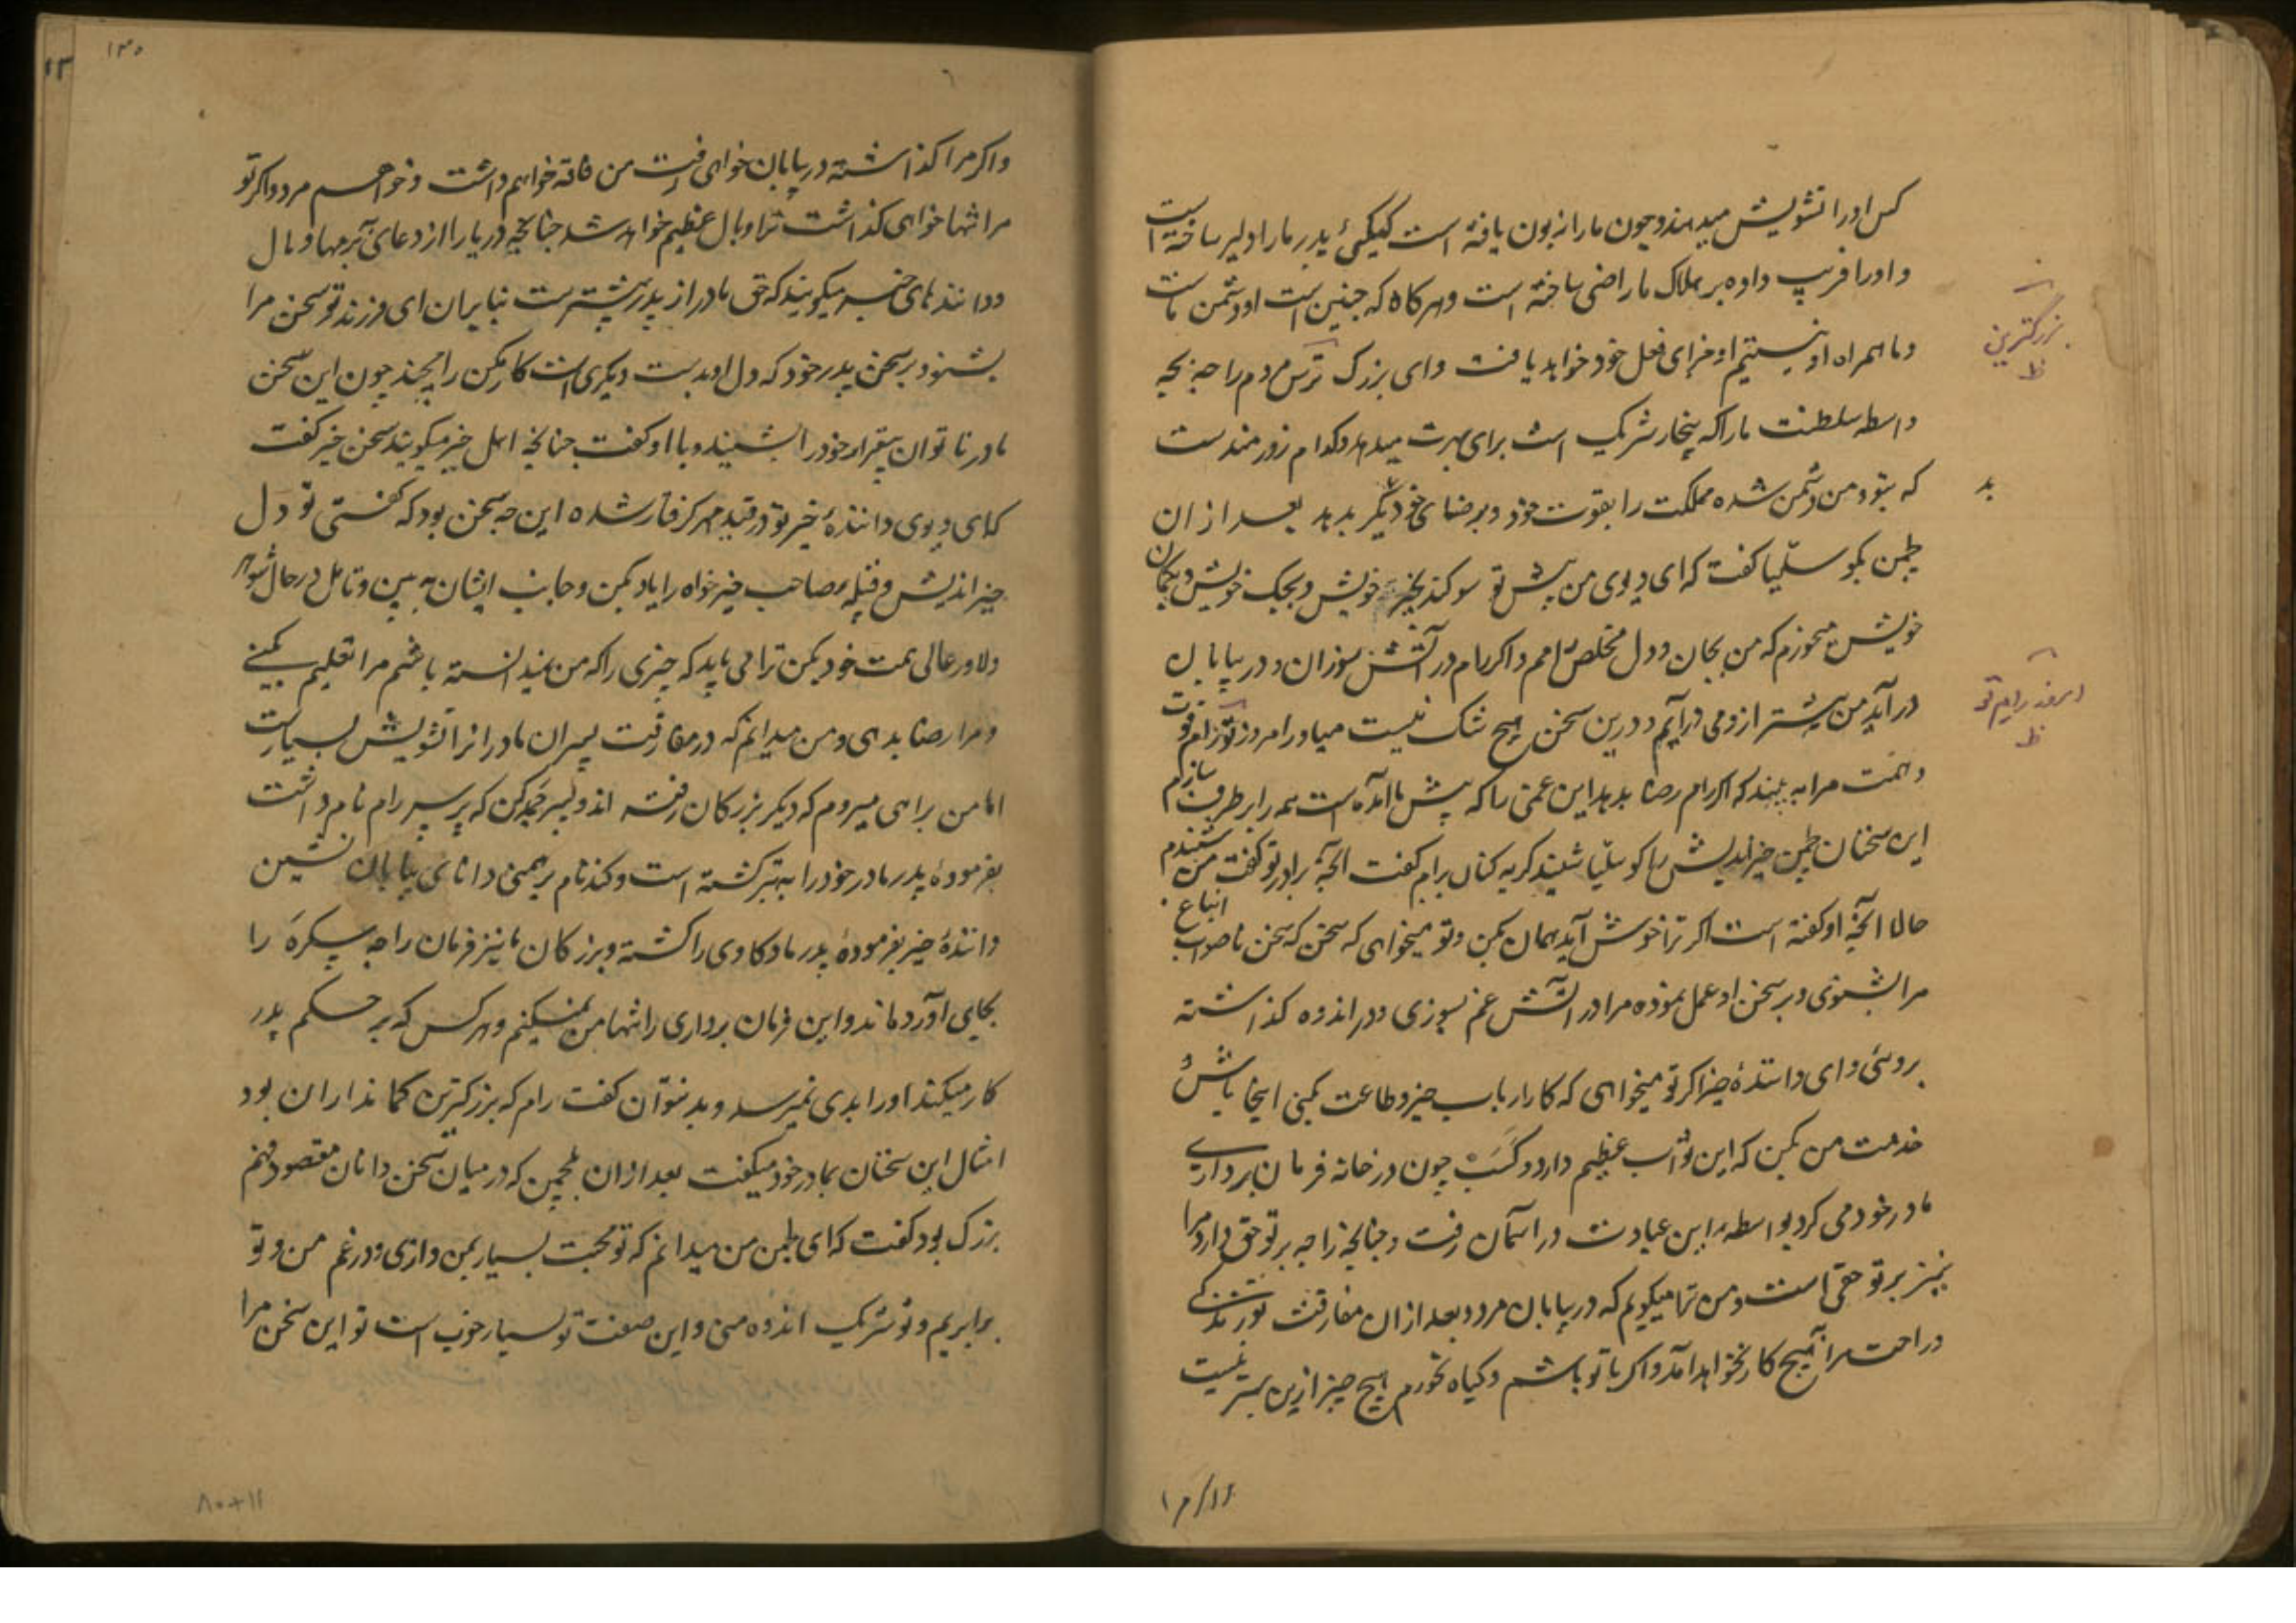 کس او را تشویش میدهند و چون ما را زبون یافته است کیکئی پدر ما را دلیر ساخته است
و او را فریب داده بر هلاک ما راضی ساخته است و هرکاه که چنین است او دشمن ماست
و ما همراه او نیستیم او جزای فعل خود خواهد یافت و ای بزرک ترس مردم راجه بچه
واسطه سلطنت ما را که بنجار شریک است برای بهرت میدهد و کدام زورمند ست
که بتو و من دشمن شده مملکت را بقوت خود و برضای خود دیگر بدهد بعد از ان
لچمن بکوسلیا کفت که ای دیوی من پیش تو سوکند بخیر خویش و بجک خویش و بکمان
خویش میخورم که من بجان و دل مخلص رامم و اکر رام در آتش سوزان و در بیابان
در آید من پیشتر از وی در آیم و درین سخن هیچ شک نیست میادر امروز تو قوت
و همت مرا به بیند که اکر رام رضا بدهد این غمی را که پیش ما آمده است همه را برطرف سازم
این سخنان لچمن خیراندیش را کوسلیا شنید کریه کنان برام کفت آنچه برادر تو کفت من شنیدم
حالا آنچه او کفته است اکر ترا خوش آید همان بکن و تو میخواهی که سخن که سخن ناصواب انباغ
مرا بشنوی و بر سخن او عمل نموده مرا در آتش غم بسوزی و در اندوه کذاشته
بروی و ای دانندهٔ خیر اکر تو میخواهی که کار ارباب خیر و طاعت بکنی اینجا باش و
خدمت من بکن که این ثواب عظیم دارد و کسب چون در خانه فرمان برداری
مادر خود می کرد بواسطهٔ این عبادت در آسمان رفت و چنانچه راجه بر تو حق دارد مرا
نیز بر تو حقی است و من ترا میکویم که در بیابان مرو و بعد از ان مفارقت تو زندکی
و راحت مرا هیچ کار نخواهد آمد و اکر با تو باشم و کیاه خورم هیچ چیز ازین بهتر نیست
بزرکترین
ظ
بد
ظ
واکر مرا کذاشته در بیابان خواهی رفت من فاقه خواهم داشت و خواهم مرد و اکر تو
مرا تنها خواهی کذاشت ترا وبال عظیم خواهد شد چنانچه دریا را از دعای برمها وبال
و دانندهای خیر میکویند که حق مادر از پدر بیشتر ست بنا بران ای فرزند تو سخن مرا
بشنو و بر سخن پدر خود که دل او بدست دیکری است کار مکن رامچند چون این سخن
مادر ناتوان بیقرار خود را بشنید و با او کفت چنانچه اهل خیر میکویند سخن خیر کفت
که ای دیوی دانندهٔ خیر تو در قید مهر کرفتار شده این چه سخن بود که کفتی تو دل
خیراندیش و قبیله و صاحب خیرخواه را یاد بکن و جانب ایشان به بین و تامل در حال شوهر
دلاور عالی همت خود بکن ترا می باید که چیزی را که من ندانسته باشم مرا تعلیم بکنی
و مرا رضا بدهی و من میدانم که در مفارقت پسران مادرانرا تشویش بسیارست
اما من براهی میروم که دیکر بزرکان رفته اند و پسر جمدکن که پرسرام نام داشت
بفرمودهٔ پدر مادر خود را به تبر کشته است و کند نام برهمنی دانای بیابان نشین
دانندهٔ خیر بفرمودهٔ پدر ماده کاوی را کشته و بزرکان ما نیز فرمان راجه سکره را
بجای آورده اند و این فرمان برداری را تنها من نمیکنم و هر کس که بر حکم پدر
کار میکند او را بدی نمیرسد و بد نتوان کفت رام که بزرکترین کمانداران بود
امثال این سخنان بمادر خود میکفت بعد از ان بلچمن که در میان سخن دانان مقصود فهم
بزرک بود کفت که ای لچمن من میدانم که تو محبت بسیار بمن داری و در غم من و تو
برابریم و تو شریک اندوه منی و این صفت تو بسیار خوب است تو این سخن مرا
۱۳۵